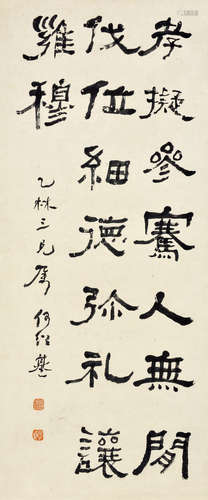 孝擬參騫人無閒
伐位細德弥礼讓
雍穆
乙林三兄屬 何紹基